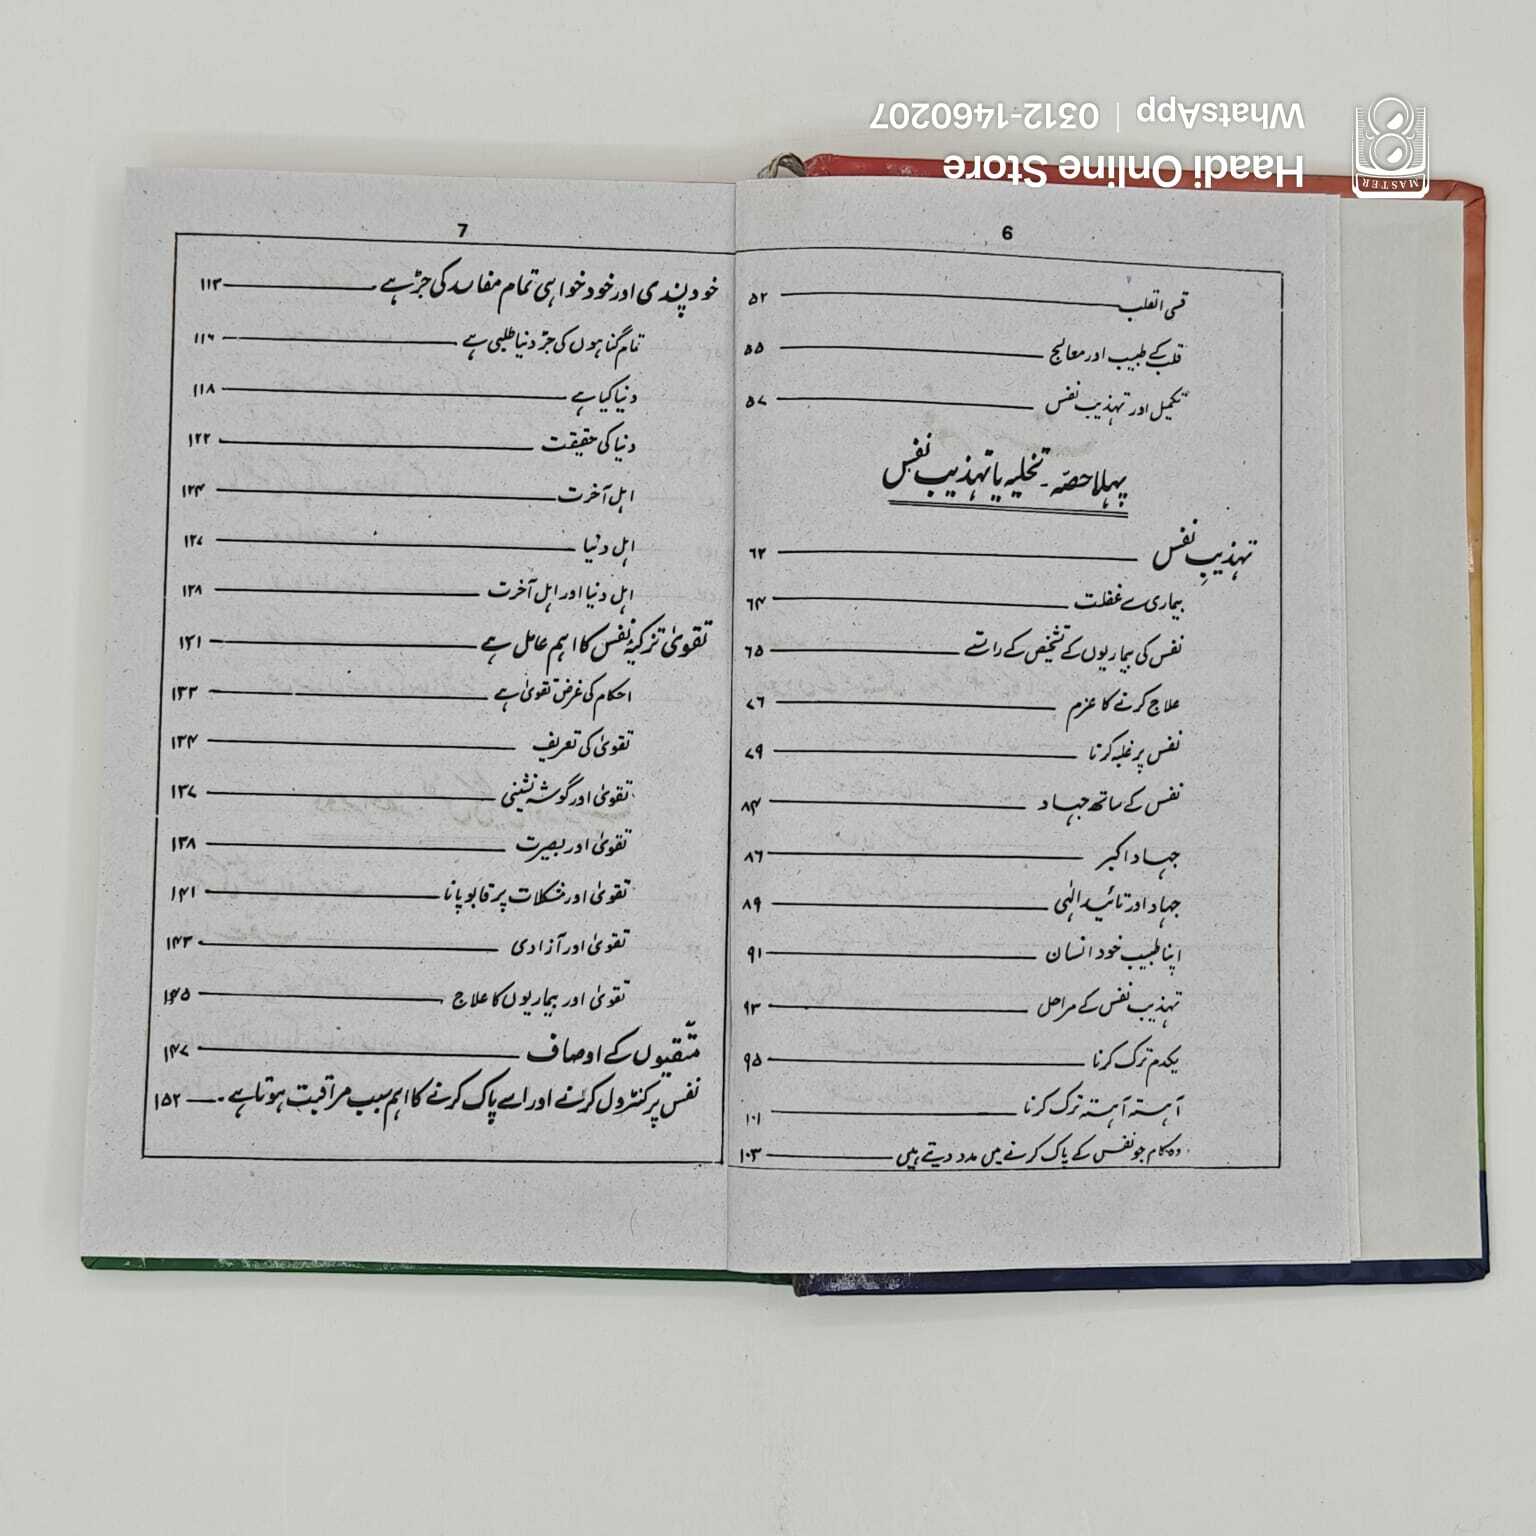 6
قسی القلب ۵۲
قلب کے طبیب اور معالج ۵۵
تکمیل اور تہذیب نفس ۵۷
پہلا حصّہ ۔ تخلیہ یا تہذیب نفس
تہذیبِ نفس ۶۲
بیماری سے غفلت ۶۴
نفس کی بیماریوں کے تشخیص کے راستے ۶۵
علاج کرنے کا عزم ۷۶
نفس پر غلبہ کرنا ۷۹
نفس کے ساتھ جہاد ۸۴
جہاد اکبر ۸۶
جہاد اور تائید الٰہی ۸۹
اپنا طبیب خود انسان ۹۱
تہذیب نفس کے مراحل ۹۳
یکدم ترک کرنا ۹۵
آہستہ آہستہ ترک کرنا ۱۰۱
وہ کام جو نفس کے پاک کرنے میں مدد دیتے ہیں ۱۰۳
7
خود پسندی اور خود خواہی تمام مفاسد کی جڑ ہے ۱۱۳
تمام گناہوں کی جڑ دنیا طلبی ہے ۱۱۶
دنیا کیا ہے ۱۱۸
دنیا کی حقیقت ۱۲۲
اہل آخرت ۱۲۴
اہل دنیا ۱۲۷
اہل دنیا اور اہل آخرت ۱۲۸
تقویٰ تزکیۂ نفس کا اہم عامل ہے ۱۳۱
احکام کی غرض تقویٰ ہے ۱۳۳
تقویٰ کی تعریف ۱۳۴
تقویٰ اور گوشہ نشینی ۱۳۷
تقویٰ اور بصیرت ۱۳۸
تقویٰ اور مشکلات پر قابو پانا ۱۴۱
تقویٰ اور آزادی ۱۴۳
تقویٰ اور بیماریوں کا علاج ۱۴۵
متّقیوں کے اوصاف ۱۴۷
نفس پر کنٹرول کرنے اور اسے پاک کرنے کا اہم سبب مراقبت ہوتا ہے ۔ ۱۵۲
MASTER
Haadi Online Store
WhatsApp | 0312-1460207